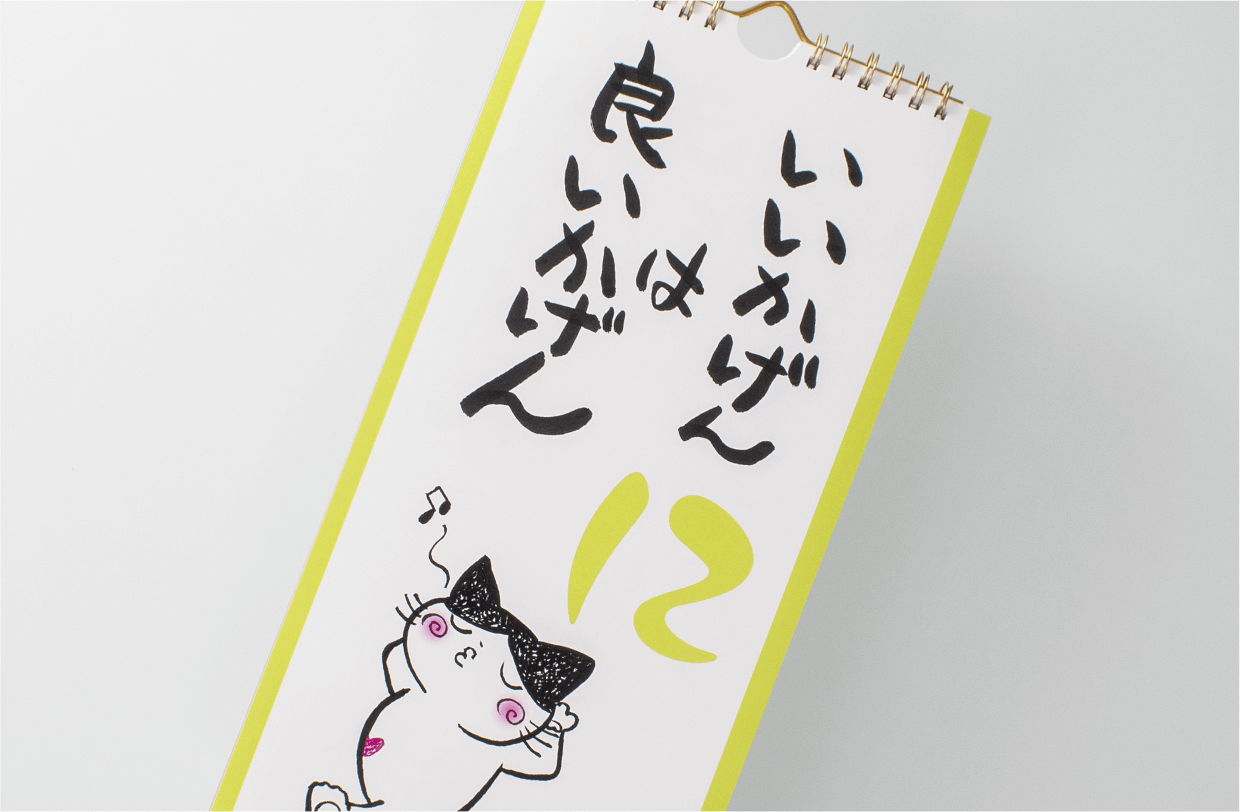 いいかげん
は
良いかげん
12